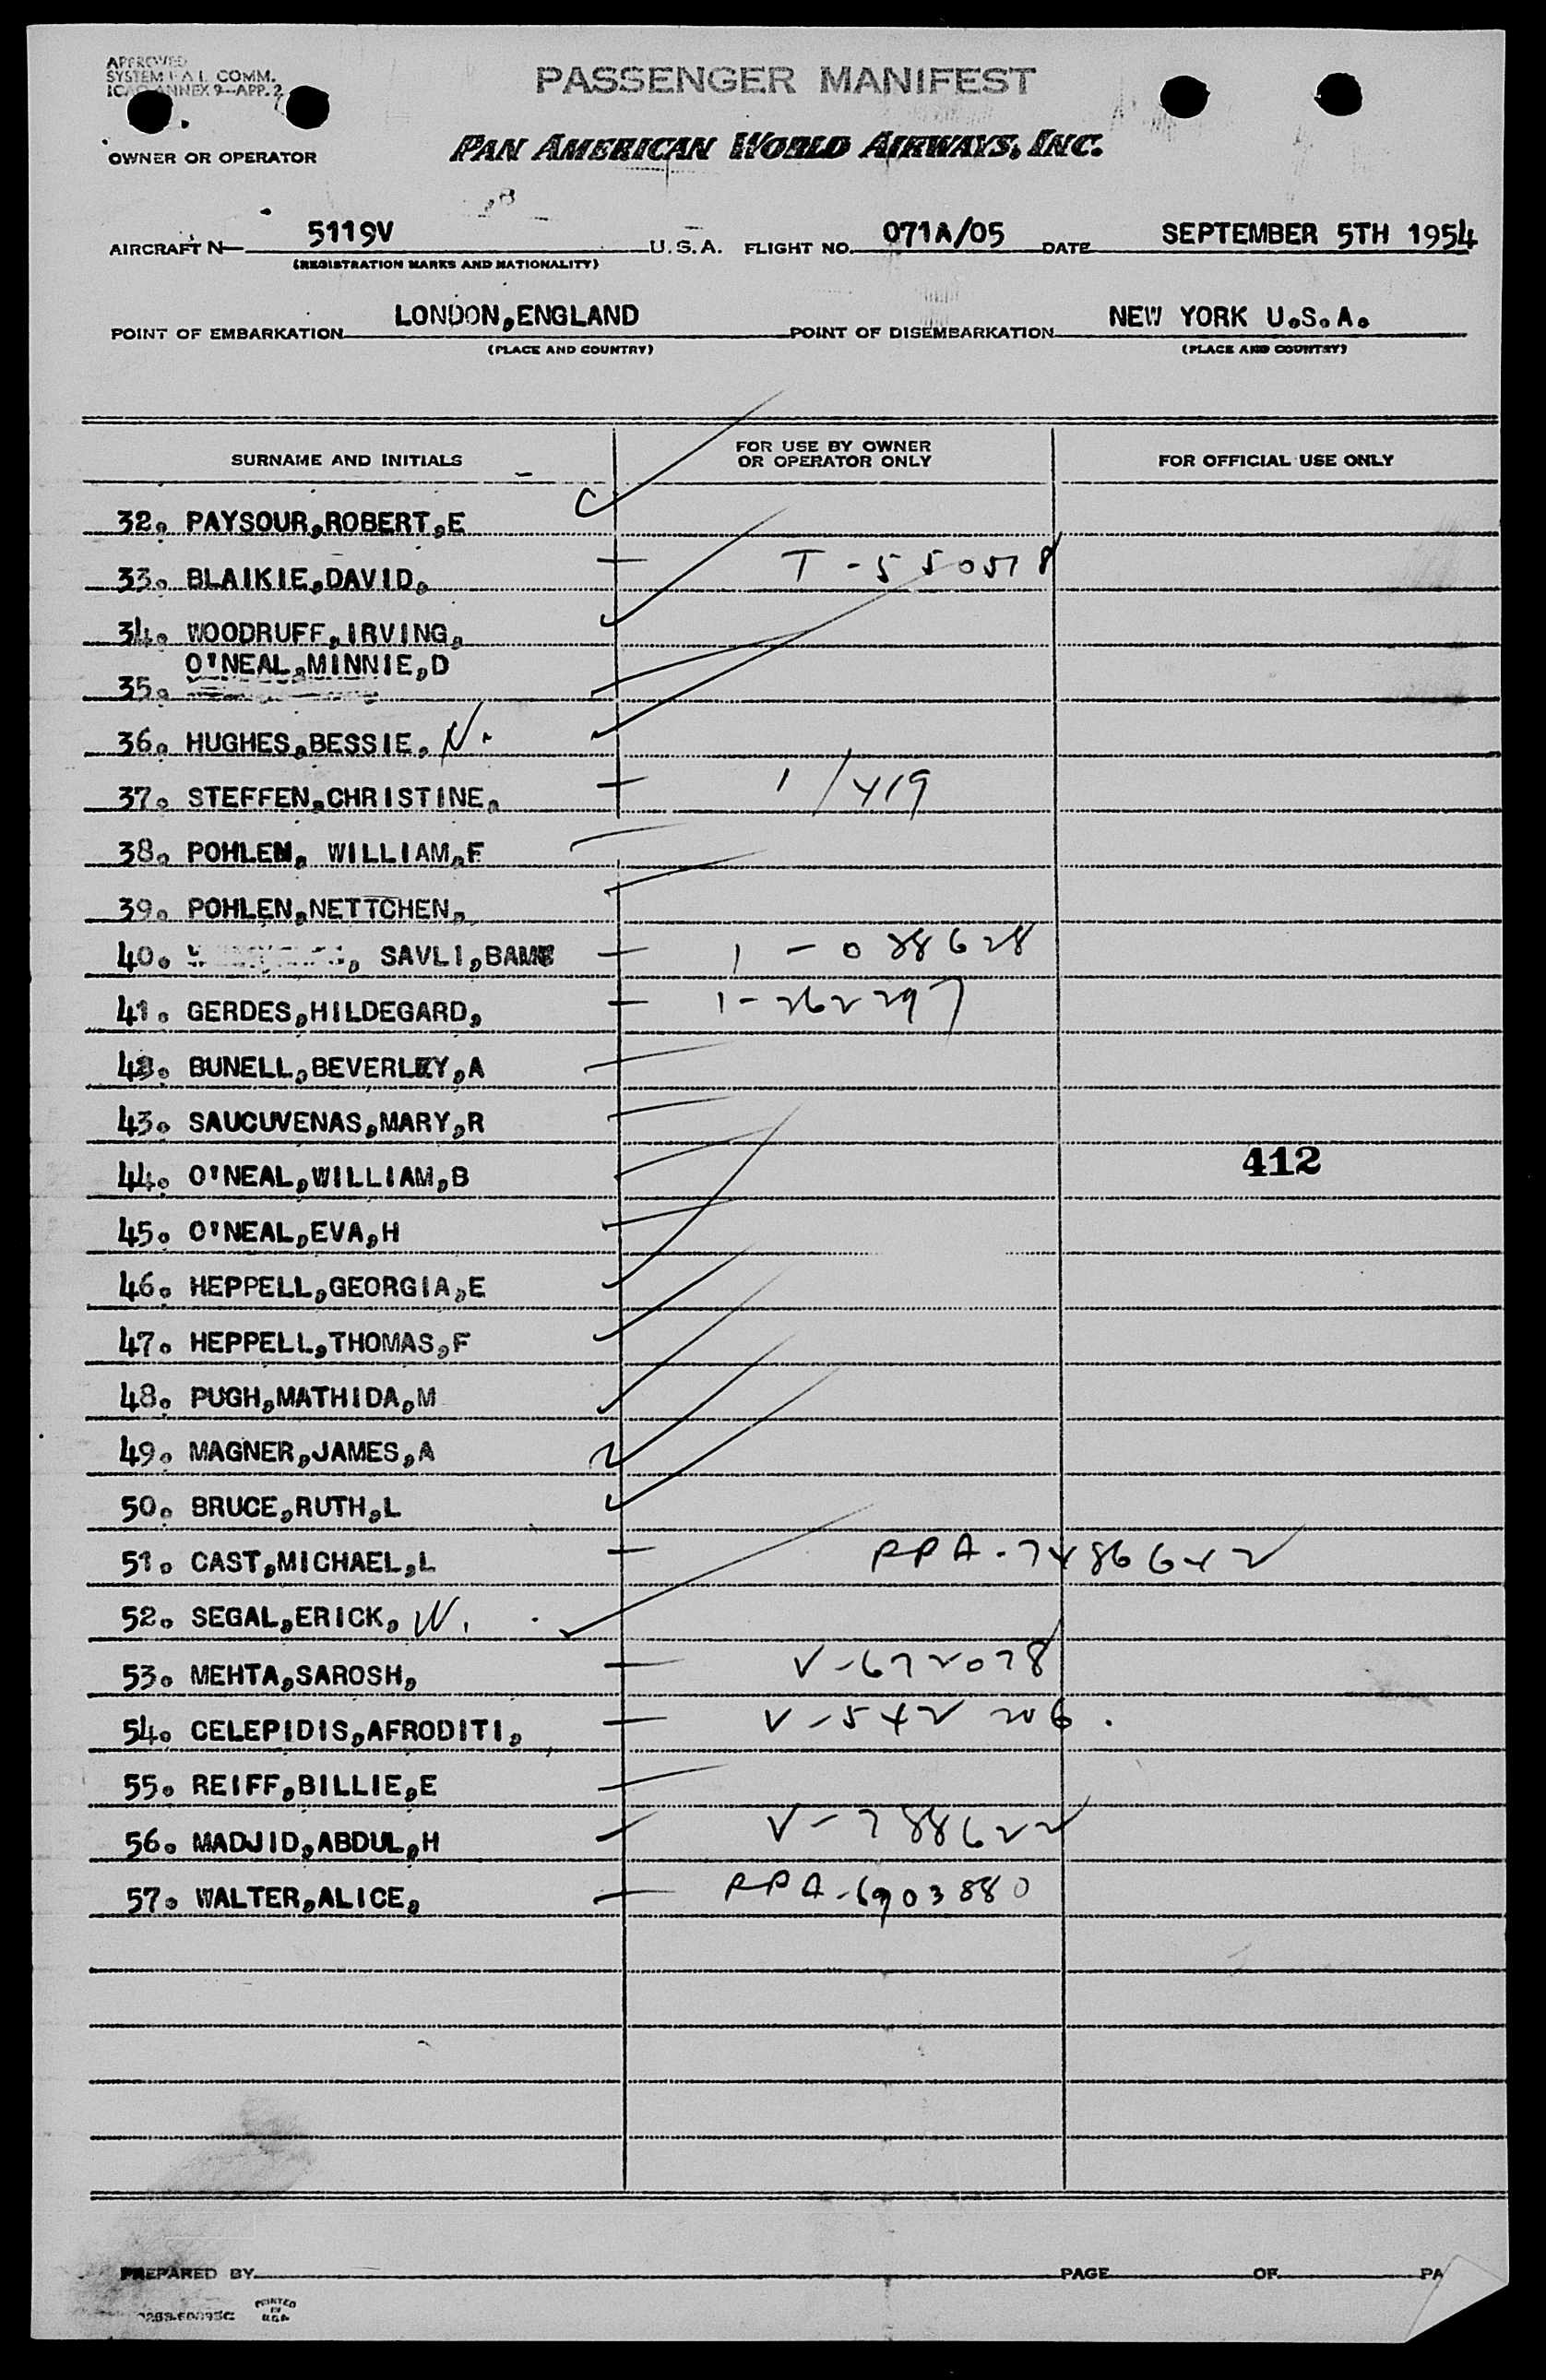 APPROVED
SYSTEM F.A.L. COMM.
ICAO ANNEX 9—APP. 2
PASSENGER MANIFEST
OWNER OR OPERATOR PAN AMERICAN WORLD AIRWAYS, INC.
AIRCRAFT N 5119V U.S.A. FLIGHT NO. 071A/05 DATE SEPTEMBER 5TH 1954
(REGISTRATION MARKS AND NATIONALITY)
POINT OF EMBARKATION LONDON,ENGLAND POINT OF DISEMBARKATION NEW YORK U.S.A.
(PLACE AND COUNTRY) (PLACE AND COUNTRY)
SURNAME AND INITIALS FOR USE BY OWNER OR OPERATOR ONLY FOR OFFICIAL USE ONLY
32. PAYSOUR,ROBERT,E
33. BLAIKIE,DAVID, T-550578
34. WOODRUFF,IRVING,
O'NEAL,MINNIE,D
35.
36. HUGHES,BESSIE. N.
37. STEFFEN,CHRISTINE, 1/419
38. POHLEN, WILLIAM,F
39. POHLEN,NETTCHEN,
40. , SAVLI,BAME 1-088628
41. GERDES,HILDEGARD, 1-262297
42. BUNELL,BEVERLEY,A
43. SAUCUVENAS,MARY,R
44. O'NEAL,WILLIAM,B 412
45. O'NEAL,EVA,H
46. HEPPELL,GEORGIA,E
47. HEPPELL,THOMAS,F
48. PUGH,MATHIDA,M
49. MAGNER,JAMES,A
50. BRUCE,RUTH,L
51. CAST,MICHAEL,L RPA-7486642
52. SEGAL,ERICK, W.
53. MEHTA,SAROSH, V-672078
54. CELEPIDIS,AFRODITI, V-542206.
55. REIFF,BILLIE,E
56. MADJID,ABDUL,H V-788622
57. WALTER,ALICE, RPA-6903880
PREPARED BY PAGE OF PA
PRINTED IN U.S.A.